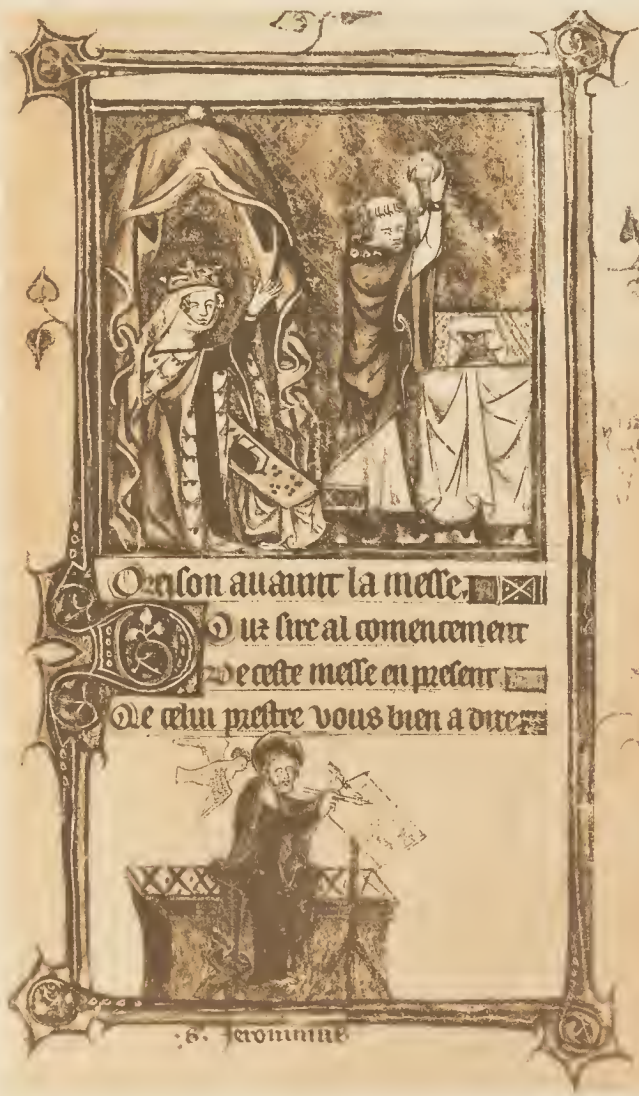 Oreison auaunt la messe.
Duz sire al comencement
De ceste messe en present
Qe celui prestre vous bien a dire
.S. Jeronimus